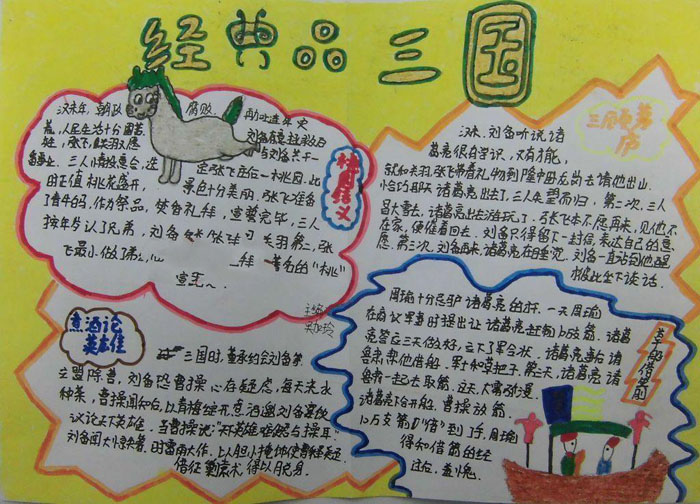 经典品三国
桃园结义
汉末年,朝政 腐败,再加上连年灾
荒,人民生活十分困苦。 刘备有意拯救百
姓,张飞、关羽又愿 与刘备共干一
三人情投意合,选 定张飞庄后一桃园。此
时正值桃花盛开, 景色十分美丽,张飞准备
作祭品,焚香礼拜,宣誓完毕,三人
按年岁认了兄弟,刘备
飞最小做了弟 拜 著名的“桃
宣无
三顾茅庐
汉末,刘备听说诸
葛亮很有学识,又有才能,
就和关羽、张飞带着礼物到隆中卧龙岗去请他出山。
恰巧那天诸葛亮出去了,三人失望而归,第二次,三人
冒大雪去,诸葛亮出去游玩了,张飞本不愿再来,见他不
在家,便催着回去,刘备只得留下一封信,表达自己的意
愿。第三次,刘备再来,诸葛亮在睡觉,刘备一直站到他醒
彼此坐下谈话。
煮酒论英雄
三国时,董承约会刘备等
立盟除曹,刘备恐曹操心存疑虑,每天浇水
种菜,曹操闻知后,以青梅绽开,煮酒邀刘备宴饮,
议论天下英雄。当曹操说:“天下英雄唯使君与操耳”
刘备闻大惊失箸,时雷雨大作,以胆小掩饰使曹操
得以脱身。
草船借箭
周瑜十分忌妒诸葛亮的才。一天周瑜
在商议军事时提出让诸葛亮赶制10万支箭。诸葛
亮答应三天做好,立下了军令状。诸葛亮事后请
鲁肃帮他借船、军士和草把子。第三天,诸葛亮请
鲁肃一起去取箭。这天,大雾漫
诸葛亮下令开船,曹操放箭
10万支箭“借”到了手,周瑜
得知借箭的经
过后,羞愧。